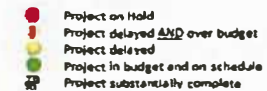 Project on Hold
Project delayed AND over budget
Project delayed
Project in budget and on schedule
Project substantially complete